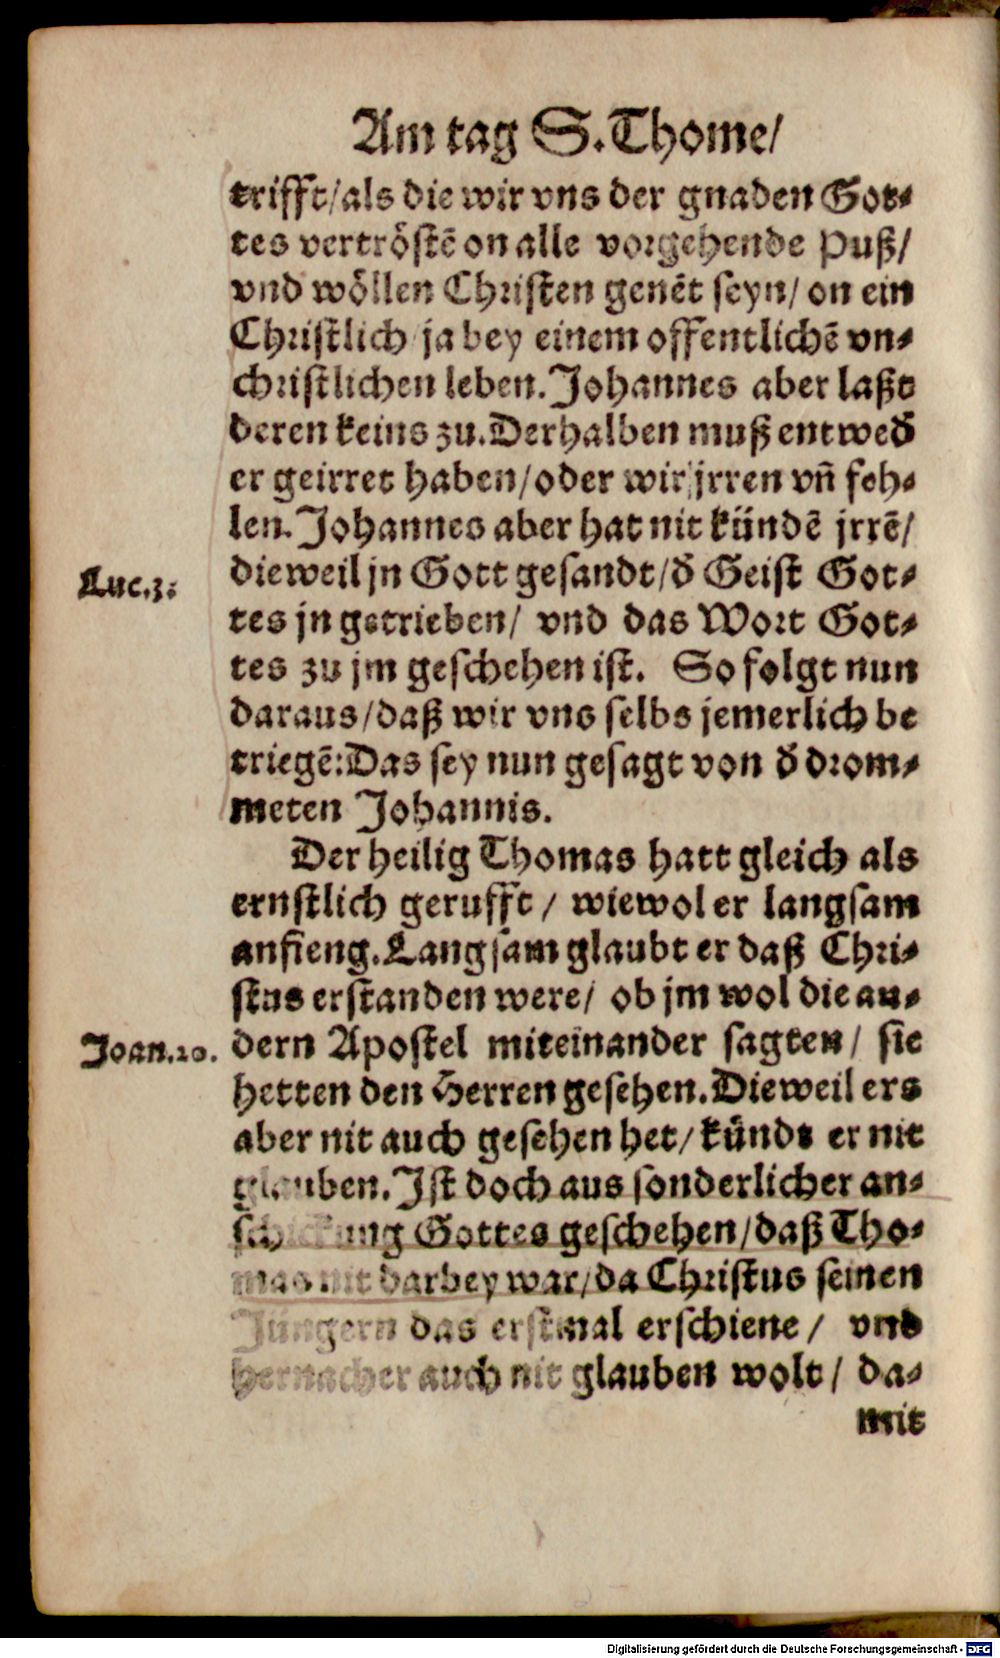 Am tag S. Thome/
trifft/als die wir vns der gnaden Got⸗
tes vertröstē on alle vorgehende Puß/
vnd wöllen Christen genēt seyn/ on ein
Christlich ja bey einem offentlichē vn⸗
christlichen leben. Johannes aber laßt
deren keins zu. Derhalben muß entwed̄
er geirret haben/oder wir jrren vn̄ feh⸗
len. Johannes aber hat nit kündē jrrē/
Luc.3.
dieweil jn Gott gesandt/d̄ Geist Got⸗
tes jn getrieben/ vnd das Wort Got⸗
tes zu jm geschehen ist. So folgt nun
daraus/daß wir vns selbs jemerlich be
triegē: Das sey nun gesagt von d̄ drom⸗
meten Johannis.
Der heilig Thomas hatt gleich als
ernstlich gerufft / wiewol er langsam
anfieng. Langsam glaubt er daß Chri⸗
stus erstanden were/ ob jm wol die an⸗
Joan.20.
dern Apostel miteinander sagten/ sie
hetten den Herren gesehen. Dieweil ers
aber nit auch gesehen het/ kündt er nit
glauben. Ist doch aus sonderlicher an⸗
schickung Gottes geschehen/daß Tho⸗
mas nit darbey war/da Christus seinen
Jüngern das erstmal erschiene / vnd
hernacher auch nit glauben wolt / da⸗
mit
Digitalisierung gefördert durch die Deutsche Forschungsgemeinschaft - DFG